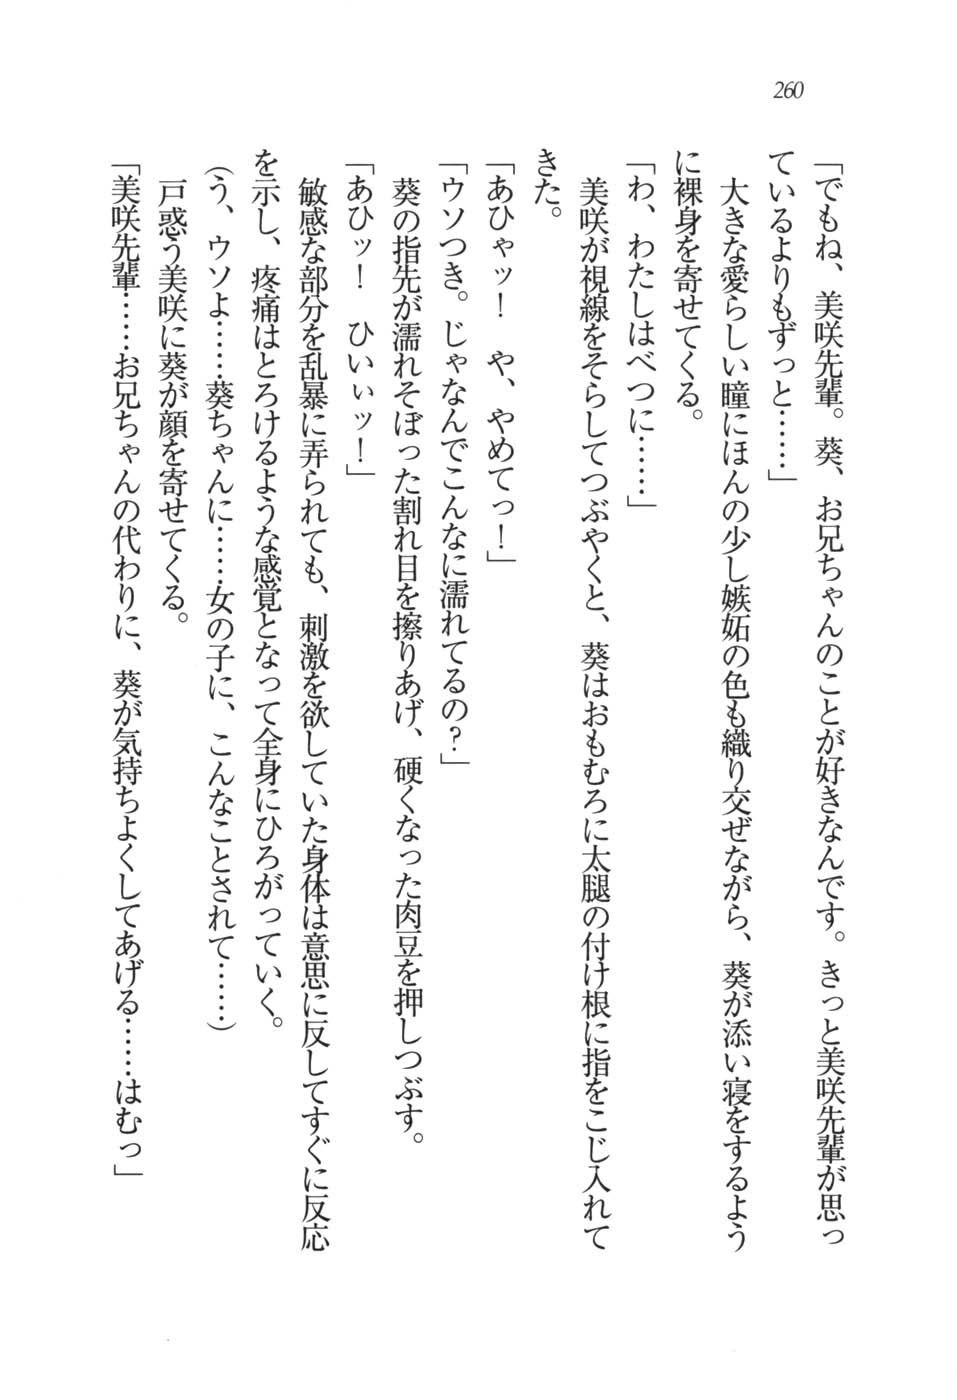 260
「でもね、美咲先輩。葵、お兄ちゃんのことが好きなんです。きっと美咲先輩が思っ
ているよりもずっと……」
　大きな愛らしい瞳にほんの少し嫉妬の色も織り交ぜながら、葵が添い寝をするよう
に裸身を寄せてくる。
「わ、わたしはべつに……」
　美咲が視線をそらしてつぶやくと、葵はおもむろに太腿の付け根に指をこじ入れて
きた。
「あひゃッ！　や、やめてっ！」
「ウソつき。じゃなんでこんなに濡れてるの？」
　葵の指先が濡れそぼった割れ目を擦りあげ、硬くなった肉豆を押しつぶす。
「あひッ！　ひいぃッ！」
　敏感な部分を乱暴に弄られても、刺激を欲していた身体は意思に反してすぐに反応
を示し、疼痛はとろけるような感覚となって全身にひろがっていく。
（う、ウソよ……葵ちゃんに……女の子に、こんなことされて……）
　戸惑う美咲に葵が顔を寄せてくる。
「美咲先輩……お兄ちゃんの代わりに、葵が気持ちよくしてあげる……はむっ」